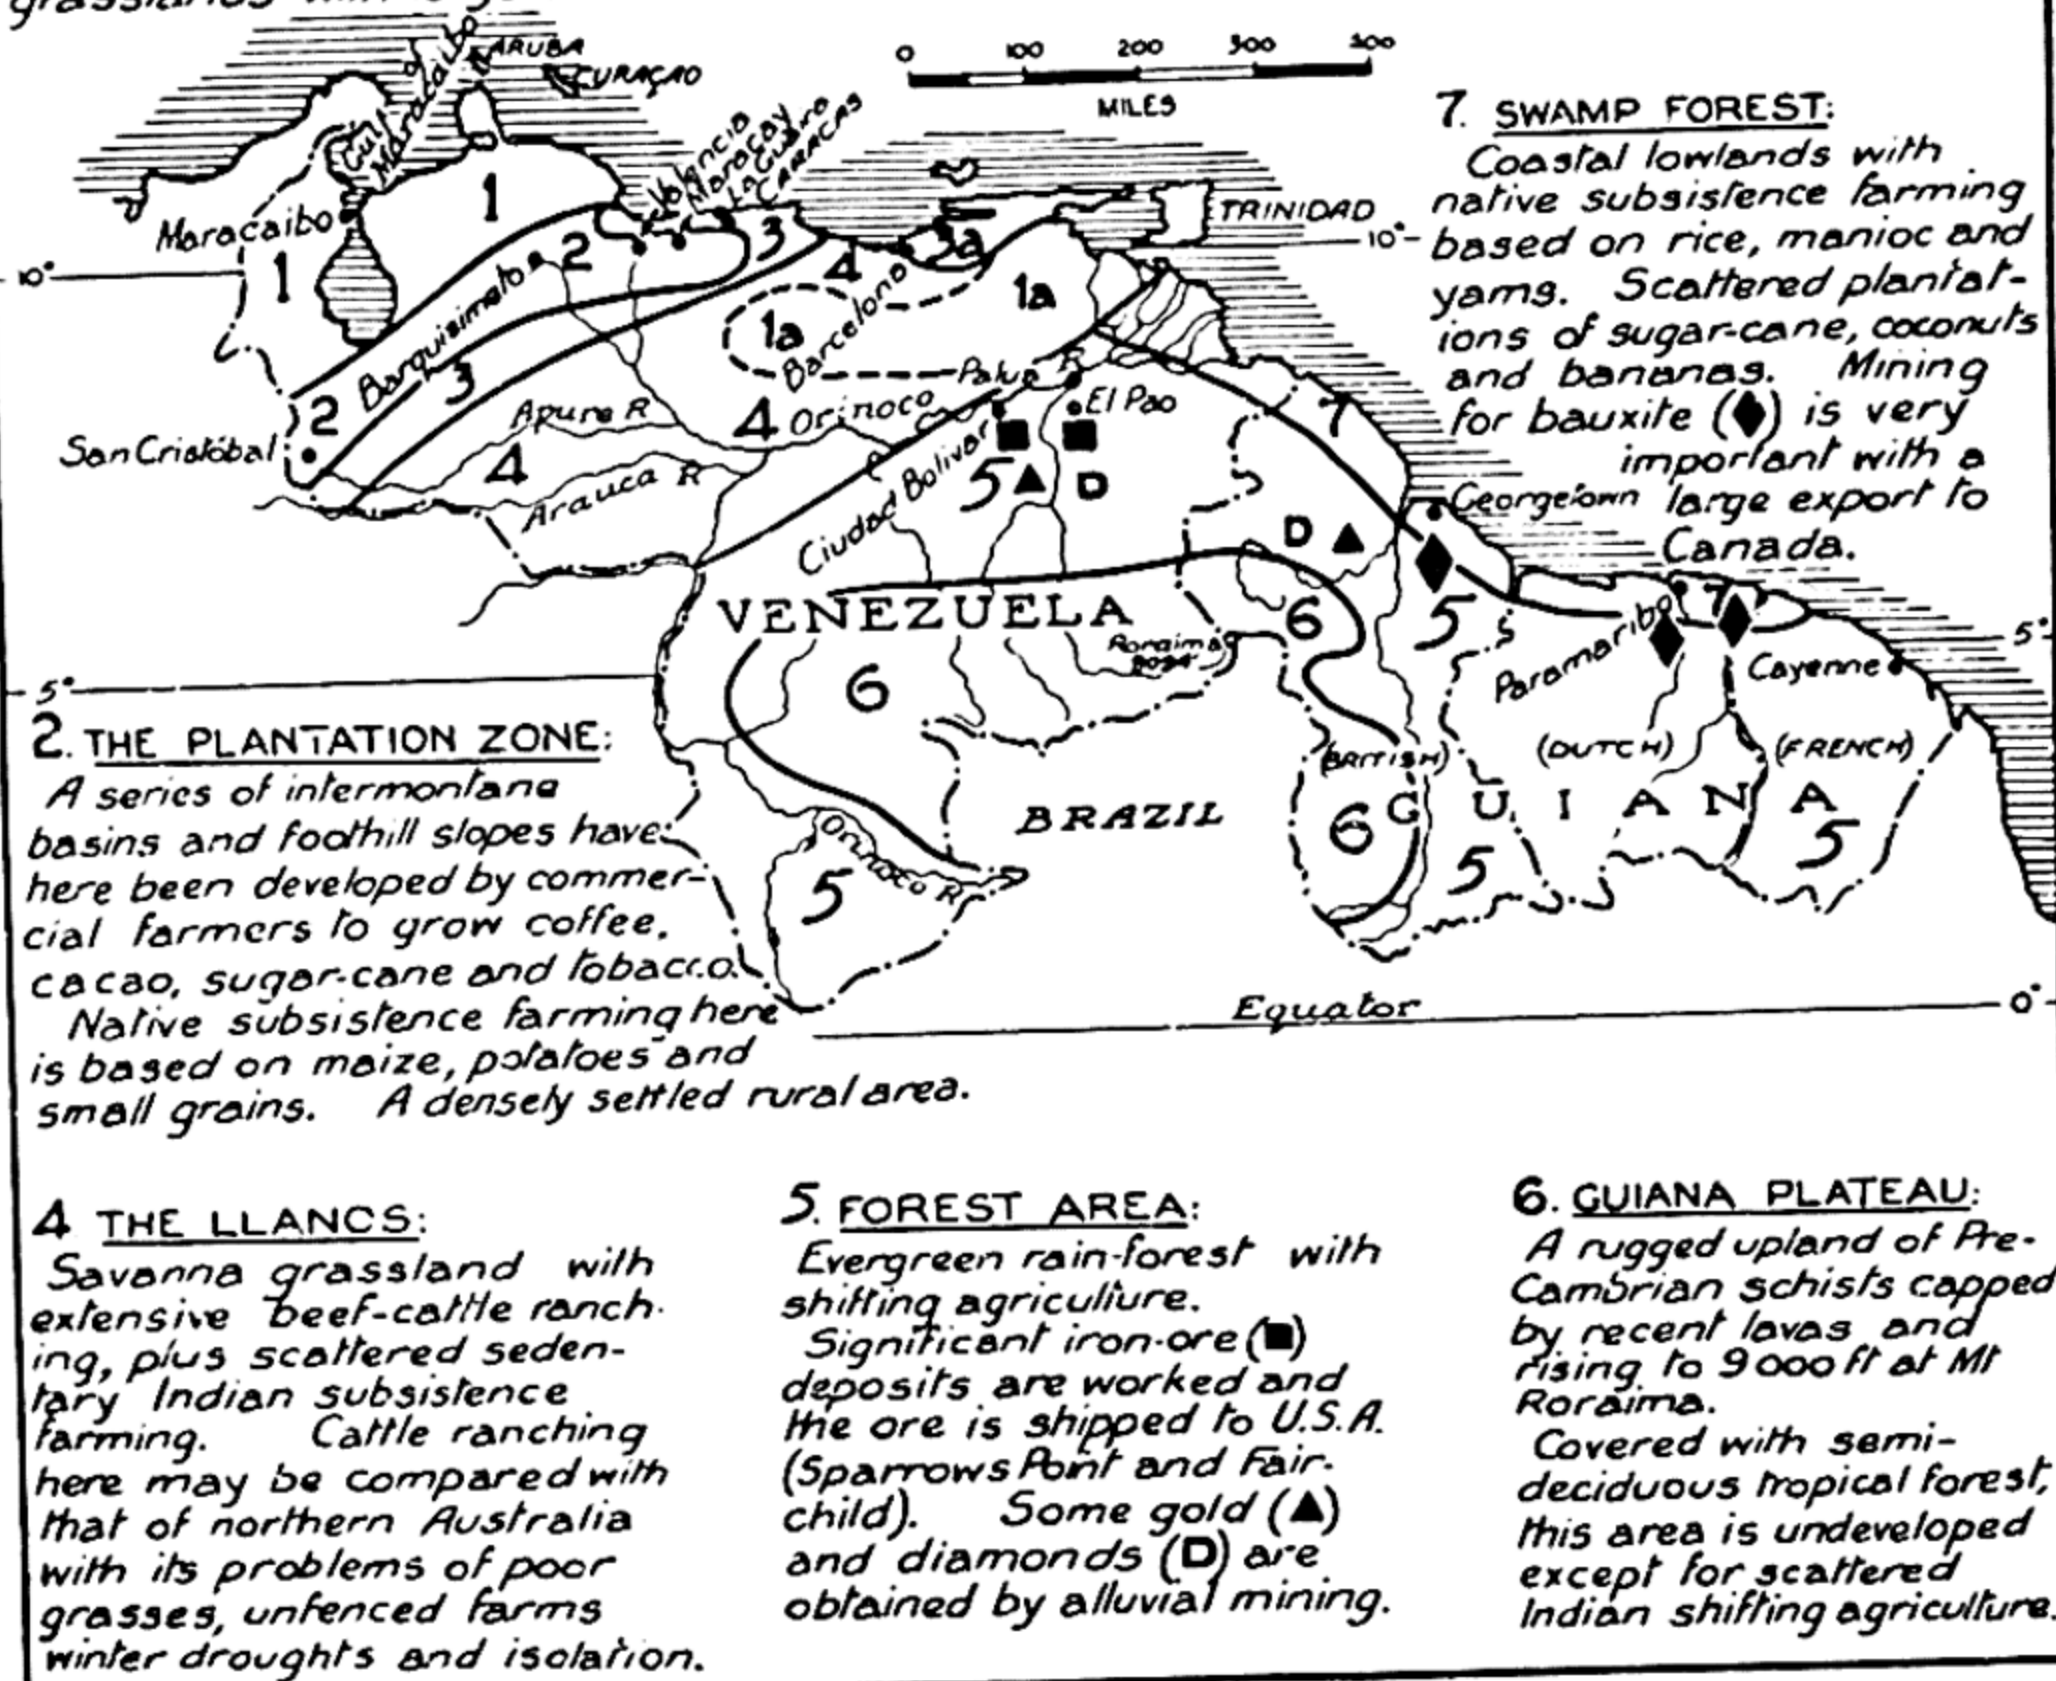 ARUBA
CURAÇAO
0 100 200 300 400
MILES
Gulf of Maracaibo
Valencia
Maracay
La Guaira
CARACAS
Maracaibo
TRINIDAD
10°
10°
1
1
2
3
3a
4
1a
1a
Barquisimeto
Barcelona
2
3
San Cristóbal
Apure R
4
Orinoco R
Palua
El Pao
4
Arauca R
Ciudad Bolivar
5 D
7
Georgetown
D
VENEZUELA
Roraima
6
6
5
7
Paramaribo
Cayenne
5°
5°
(BRITISH)
(DUTCH)
(FRENCH)
BRAZIL
GUIANA
6
5
5
5
Orinoco R
Equator
0°
7. SWAMP FOREST:
Coastal lowlands with
native subsistence farming
based on rice, manioc and
yams. Scattered plantat-
ions of sugar-cane, coconuts
and bananas. Mining
for bauxite (♦) is very
important with a
large export to
Canada.
2. THE PLANTATION ZONE:
A series of intermontane
basins and foothill slopes have
here been developed by commer-
cial farmers to grow coffee,
cacao, sugar-cane and tobacco.
Native subsistence farming here
is based on maize, potatoes and
small grains. A densely settled rural area.
4 THE LLANOS:
Savanna grassland with
extensive beef-cattle ranch-
ing, plus scattered seden-
tary Indian subsistence
farming. Cattle ranching
here may be compared with
that of northern Australia
with its problems of poor
grasses, unfenced farms
winter droughts and isolation.
5. FOREST AREA:
Evergreen rain-forest with
shifting agriculture.
Significant iron-ore (■)
deposits are worked and
the ore is shipped to U.S.A.
(Sparrows Point and Fair-
child). Some gold (▲)
and diamonds (D) are
obtained by alluvial mining.
6. GUIANA PLATEAU:
A rugged upland of Pre-
Cambrian schists capped
by recent lavas and
rising to 9000 ft at Mt
Roraima.
Covered with semi-
deciduous tropical forest,
this area is undeveloped
except for scattered
Indian shifting agriculture.